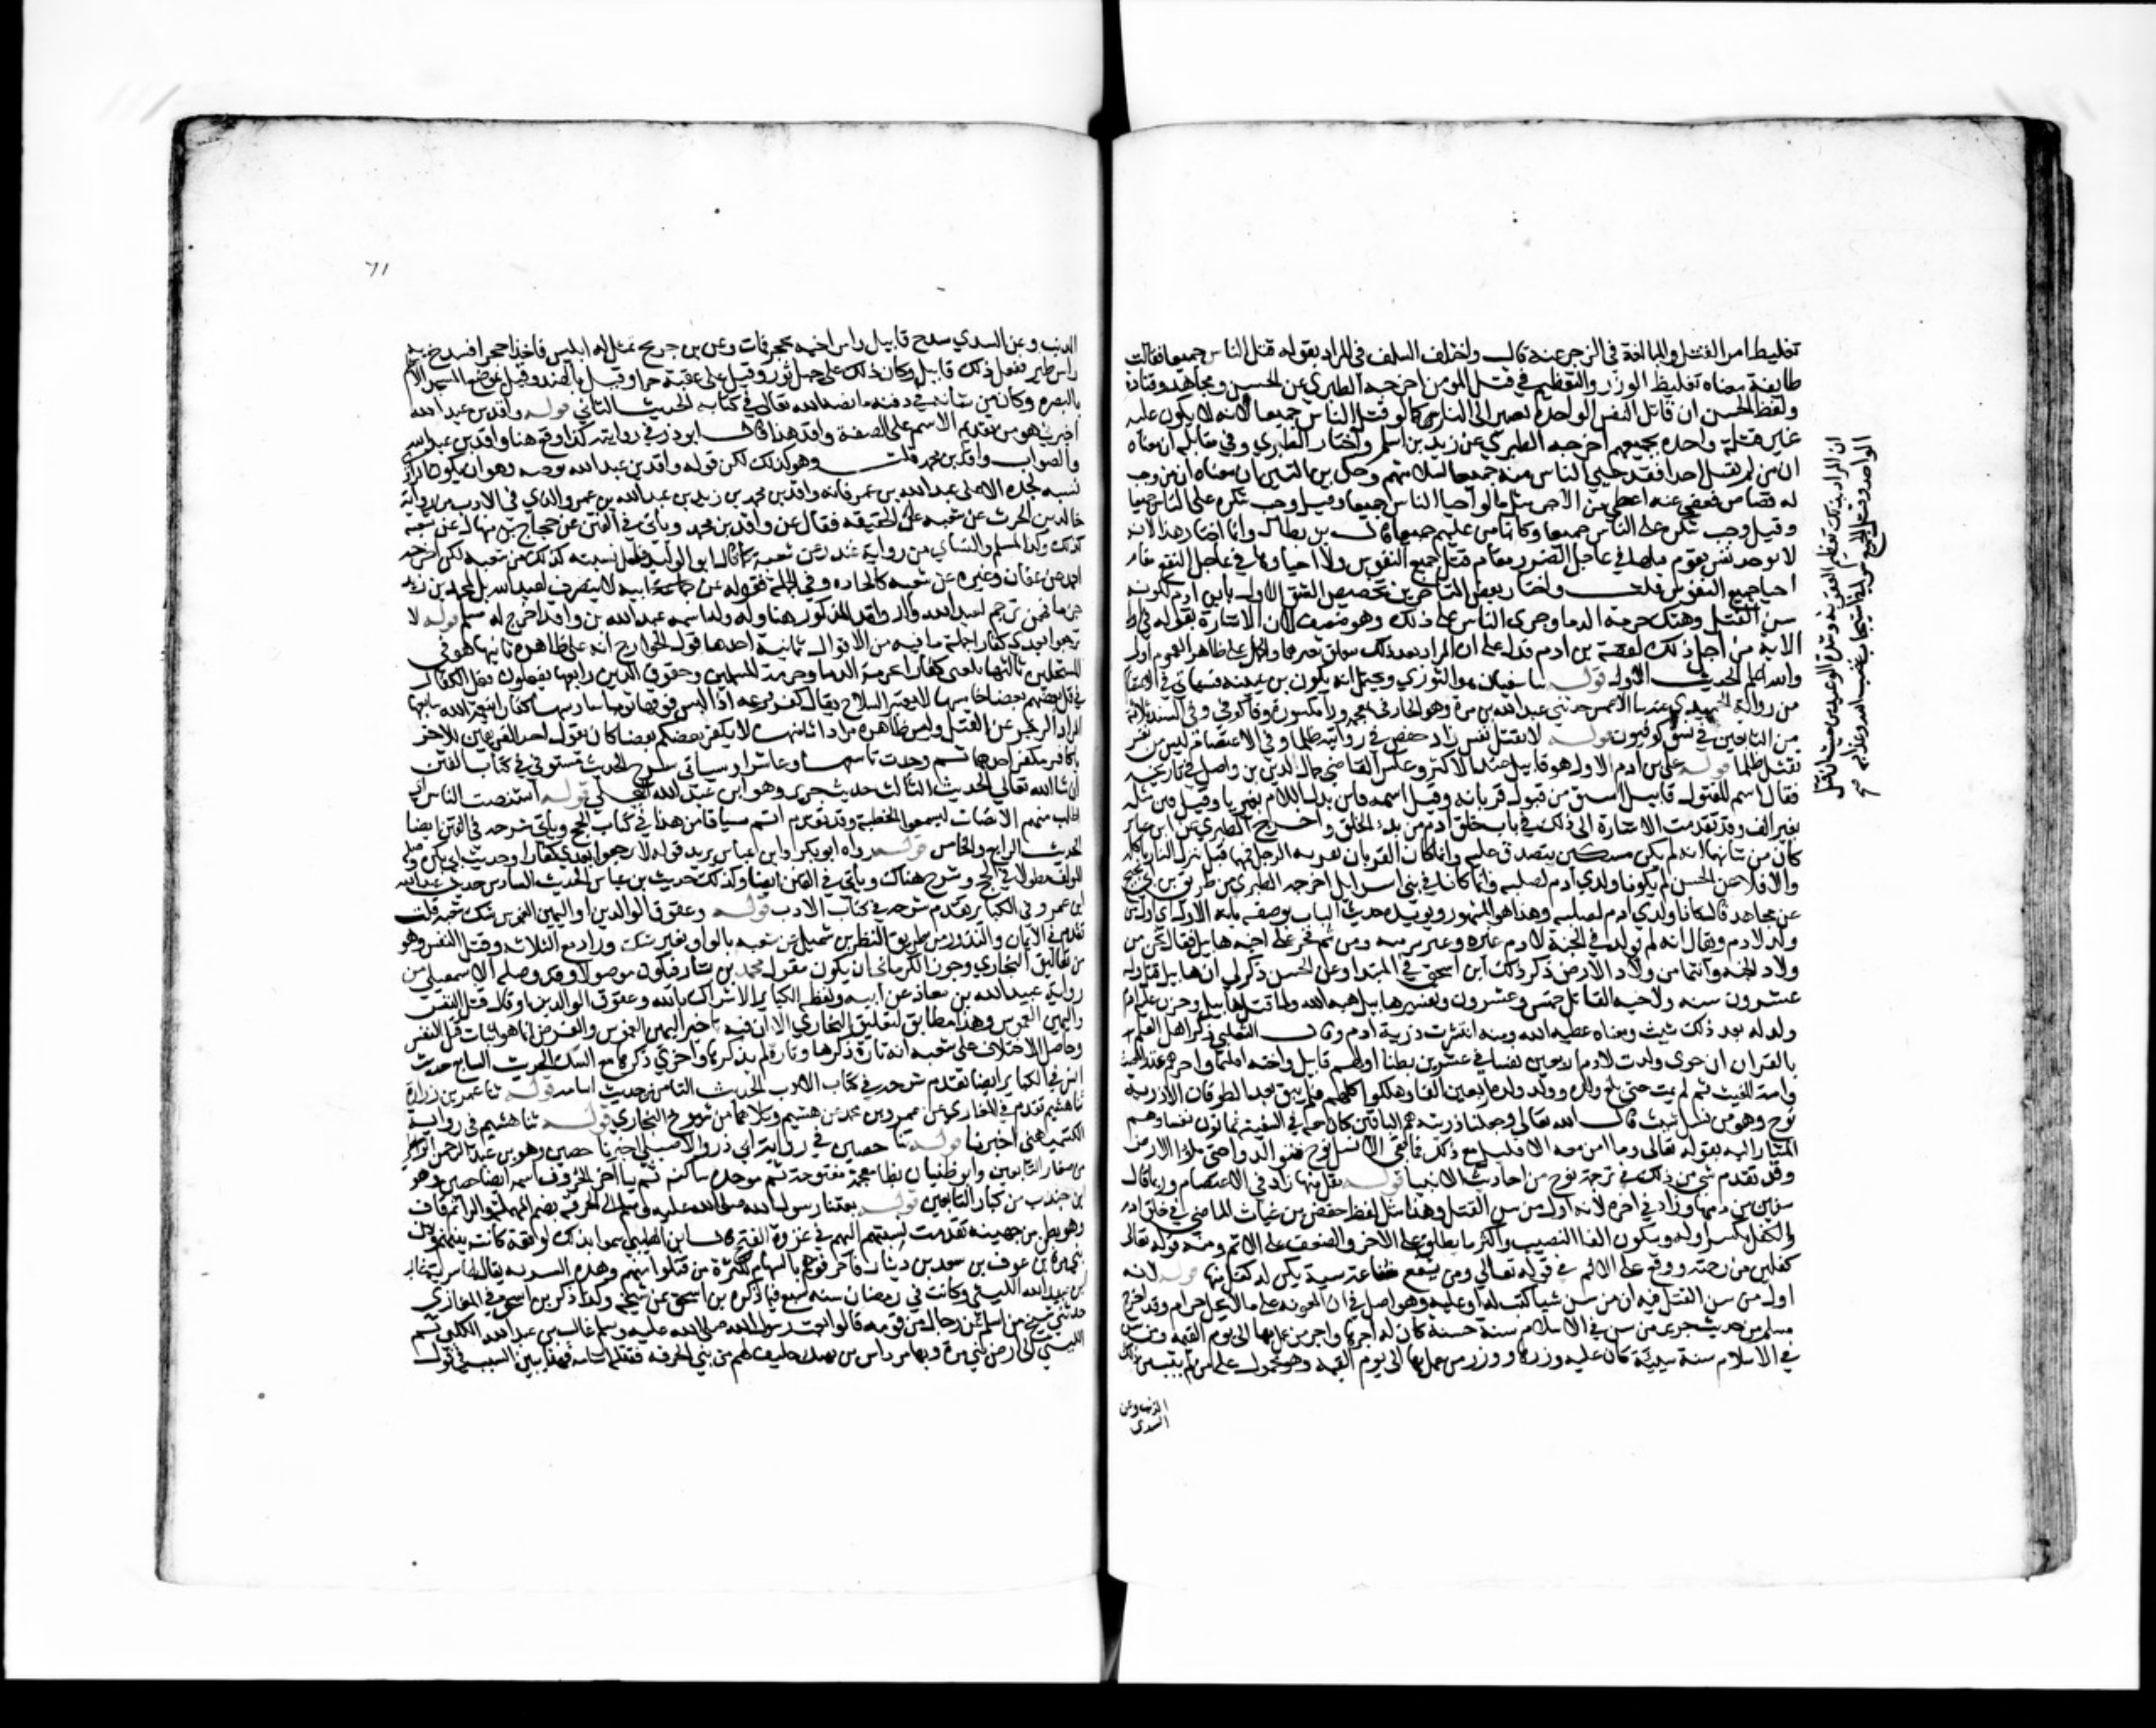 تغليظ امر القتل والمبالغة في الزجر عنه قال واختلف السلف في المراد بقوله قتل الناس جميعا فقالت
طايفة معناه تغليظ الوزر والتعظيم في قتل المومن اخرجه الطبري عن الحسن ومجاهد وقتادة
ولفظ الحسن ان قاتل النفس الواحدة يصير الى النار كما لو قتل الناس جميعا لانه لا يكون عليه
غير قتلة واحدة بجميعهم اخرجه الطبري عن زيد بن اسلم واختار الطبري وفي مقابله ان معناه
ان من لم يقتل احدا فقد حيي الناس منه جميعا لسلامتهم وحكى بن التين ان معناه ان من وجب
له قصاص فعفى عنه اعطي من الاجر مثل ما لو احيا الناس جميعا وقيل وجب شكره على الناس جميعا
وقيل وجب شكره على الناس جميعا وكانما من عليهم جميعا قال بن بطال وانما اختار هذا لانه
لا يوجد نفس يقوم قتلها في عاجل الضرر مقام قتل جميع النفوس ولا احياوها في عاجل النفع مقام
احيا جميع النفوس قلت واختار بعض المتاخرين تخصيص الشق الاول بابن ادم لكونه
سن القتل وهتك حرمة الدما وجرى الناس على ذلك وهو ضعيف لان الاشارة بقوله في اول
الاية من اجل ذلك لقصة بن ادم فدل على ان المراد بعد ذلك
والله اعلم الحديث الاول قوله ثنا سفيان هو الثوري ويحتمل انه يكون بن عيينة فسياتي في الاعتصام
من رواية الحميدي عنه ثنا الاعمش حدثني عبد الله بن مرة وهو الخارفي بمعجمة ورا مكسورة وفا كوفي وفي السند ثلاثة
من التابعين في نسق كوفيون قوله لا تقتل نفس زاد حفص في روايته ظلما وفي الاعتصام ليس من نفس
تقتل ظلما قوله على بن ادم الاول هو قابيل عند الاكثر وعكس القاضي جمال الدين بن واصل في تاريخه
فقال اسم المقتول قابيل اشتق من قبول قربانه وقيل اسمه قاين بدل اللام بغير يا وقيل قين مثله
بغير الف وقد تقدمت الاشارة الى ذلك في باب خلق ادم من بدء الخلق واخرج الطبري عن ابن عباس
كان من شانهما انه لم يكن مسكين يتصدق عليه وانما كان القربان يقربه الرجل فمهما قبل تنزل النار فتاكله
والا فلا وعن الحسن لم يكونا ولدي ادم لصلبه وانما كانا في بني اسرايل اخرجه الطبري من طريق بن ابي نجيح
عن مجاهد قال كانا ولدي ادم لصلبه وهذا هو المشهور ويويده حديث الباب بوصفه بانه الاول اي اول من
ولد لادم ويقال انه لم يولد في الجنة لادم غيره وغير توءمه ومن ثم فخر على اخيه هابيل فقال نحن من
ولاد الجنة وانتما من ولاد الارض ذكر ذلك ابن اسحق في المبتدا وعن الحسن ذكر لي ان هابيل قتل وله
عشرون سنة ولاخيه القاتل خمس وعشرون وتفسير هابيل هبة الله ولما قتل هابيل وحزن عليه ادم
ولد له بعد ذلك شيث ومعناه عطية الله ومنه انتشرت ذرية ادم وقال الثعلبي ذكر اهل العلم
بالقران ان حوى ولدت لادم اربعين نفسا في عشرين بطنا اولهم قابيل واخته اقليما واخرهم عبد المغيث
وامة المغيث ثم لم يمت حتى بلغ ولده وولد ولده اربعين الفا وهلكوا كلهم فلم يبق بعد الطوفان الا ذرية
نوح وهو من نسل شيث قال الله تعالى وجعلنا ذريته هم الباقين وكان معه في السفينة ثمانون نفسا وهم
المشار اليه بقوله تعالى وما امن معه الا قليل ومع ذلك فما بقي الا نسل نوح فتوالدوا حتى ملاوا الارض
وقد تقدم شي من ذلك في ترجمة نوح من احاديث الانبيا قوله كفل منها زاد في الاعتصام وربما قال
سفين من دمها وزاد في اخره لانه اول من سن القتل وهذا مثل لفظ حفص بن غياث الماضي في خلق ادم
والكفل بكسر اوله وسكون الفا النصيب واكثر ما يطلق على الاجر والضعف على الاثم ومنه قوله تعالى
كفلين من رحمته ووقع على الاثم في قوله تعالى ومن يشفع شفاعة سيية يكن له كفل منها قوله لانه
اول من سن القتل فيه ان من سن شيا كتب له او عليه وهو اصل في ان المعونة على ما لا يحل حرام وقد اخرج
مسلم من حديث جرير من سن في الاسلام سنة حسنة كان له اجرها واجر من عمل بها الى يوم القيمة ومن سن
في الاسلام سنة سيية كان عليه وزرها ووزر من عمل بها الى يوم القيمة وهو محمول على من لم يتب من ذلك
الذنب وعن
السدي
ان المراد بذلك تعظيم العقوبة وشدة الوعيد من حيث ان قتل
الواحد وقتل الجميع سوا في استيجاب غضب الله وعذابه صح
٦١
الذنب وعن السدي شدخ قابيل راس اخيه بحجر فمات وعن بن جريج تمثل له ابليس فاخذ حجرا فشدخ به
راس طير ففعل ذلك قابيل وكان ذلك على جبل ثور وقيل على عقبة حرا وقيل بالهند وقيل بموضع المسجد الاعظم
بالبصرة وكان من شانه في دفنه ما نصه الله تعالى في كتابه الحديث الثاني قوله واقد بن عبد الله
اخبرني هو من تقديم الاسم على الصفة واقد هذا قال ابو ذر في روايته كذا وقع هنا واقد بن عبد الله
والصواب واقد بن محمد قلت وهو كذلك لكن لقوله واقد بن عبد الله توجيه وهو ان يكون الراوي
نسبه لجده الاعلى عبد الله بن عمر فانه واقد بن محمد بن زيد بن عبد الله بن عمر والذي في الادب من رواية
خالد بن الحرث عن شعبة على الحقيقة فقال عن واقد بن محمد وياتي في الفتن عن حجاج بن منهال عن شعبة
كذلك وكذا لمسلم والنساي من رواية غندر عن شعبة كما قال ابو الوليد فلعل نسبته كذلك من شعبة لكن اخرجه
احمد عن عفان وغيره عن شعبة كالجادة وفي الجملة فقوله عن ابيه لا ينصرف لعبد الله بل لمحمد بن زيد
جزما فمن ترجم لعبد الله والد واقد المذكور هنا وله ولد اسمه عبد الله بن واقد اخرج له مسلم قوله لا
ترجعوا بعدي كفارا جملة ما فيه من الاقوال ثمانية احدها قول الخوارج انه على ظاهره ثانيها هو في
المستحلين ثالثها المعنى كفارا بحرمة الدما وحرمة المسلمين وحقوق الدين رابعها تفعلون فعل الكفار
في قتل بعضهم بعضا خامسها لابسين السلاح يقال كفر درعه اذا لبس فوقها ثوبا سادسها كفارا بنعمة الله سابعها
المراد الزجر عن الفعل وليس ظاهره مرادا ثامنها لا يكفر بعضكم بعضا كان يقول احد الفريقين للاخر
يا كافر فيكفر احدهما ثم وجدت تاسعا وعاشرا وسياتي شرح الحديث مستوفى في كتاب الفتن
ان شا الله تعالى الحديث الثالث حديث جرير وهو ابن عبد الله البجلي قوله استنصت الناس اي
اطلب منهم الانصات ليسمعوا الخطبة وقد تقدم اتم سياقا من هذا في كتاب الحج وياتي شرحه في الفتن ايضا
الحديث الرابع والخامس قوله رواه ابو بكرة وابن عباس يريد قوله لا ترجعوا بعدي كفارا وحديث ابي بكرة وصله
المولف مطولا في الحج وشرح هناك وياتي في الفتن ايضا وكذلك حديث بن عباس الحديث السادس حديث عبد الله
ابن عمرو في الكباير تقدم شرحه في كتاب الادب قوله وعقوق الوالدين او اليمين الغموس شك شعبة قلت
تقدم في الايمان والنذور من طريق النضر بن شميل عن شعبة بالواو بغير شك وزاد مع الثلاثة وقتل النفس وهو
من تعاليق البخاري وجوز الكرماني ان يكون مقول محمد بن بشار فيكون موصولا وقد وصله الاسمعيلي من
رواية عبيد الله بن معاذ عن ابيه ولفظه الكباير الاشراك بالله وعقوق الوالدين او قال قتل النفس
واليمين الغموس وهذا مطابق لتعليق البخاري الا ان فيه تاخير اليمين الغموس والغرض انما هو اثبات قتل النفس
وحاصل الاختلاف على شعبة انه تارة ذكرها وتارة لم يذكرها واخرى ذكرها مع الشك الحديث السابع حديث
انس في الكباير ايضا تقدم شرحه في كتاب الادب الحديث الثامن حديث اسامة قوله ثنا عمرو بن زرارة
ثنا هشيم تقدم في المغازي عن عمرو بن محمد عن هشيم وكلاهما من شيوخ البخاري قوله ثنا هشيم في رواية
الكشميهني اخبرنا قوله ثنا حصين في رواية ابي ذر والاصيلي اخبرنا حصين وهو بن عبد الرحمن الواسطي
من صغار التابعين وابو ظبيان بظا معجمة مفتوحة ثم موحدة ساكنة ثم يا اخر الحروف اسمه ايضا حصين وهو
ابن جندب من كبار التابعين قوله بعثنا رسول الله صلى الله عليه وسلم الى الحرقة بضم المهملة والرا ثم قاف
وهو بطن من جهينة تقدمت نسبتهم اليهم في غزوة الفتح قال ابن الكلبي سموا بذلك لوقعة كانت بينهم وبين
بني مرة بن عوف بن سعد بن ذبيان فاحرقوهم بالسهام لكثرة من قتلوا منهم وهذه السرية يقال لها سرية غالب
ابن عبد الله الليثي وكانت في رمضان سنة سبع فيما ذكره بن اسحق عن شيخه وكذا ذكر بن اسحق في المغازي
حدثني شيخ من اسلم عن رجال من قومه قالوا بعث رسول الله صلى الله عليه وسلم غالب بن عبد الله الكلبي ثم
الليثي الى ارض بني مرة وبها مرداس بن نهيك حليف لهم من بني الحرقة فقتله اسامة فهذا يبين السبب في قول